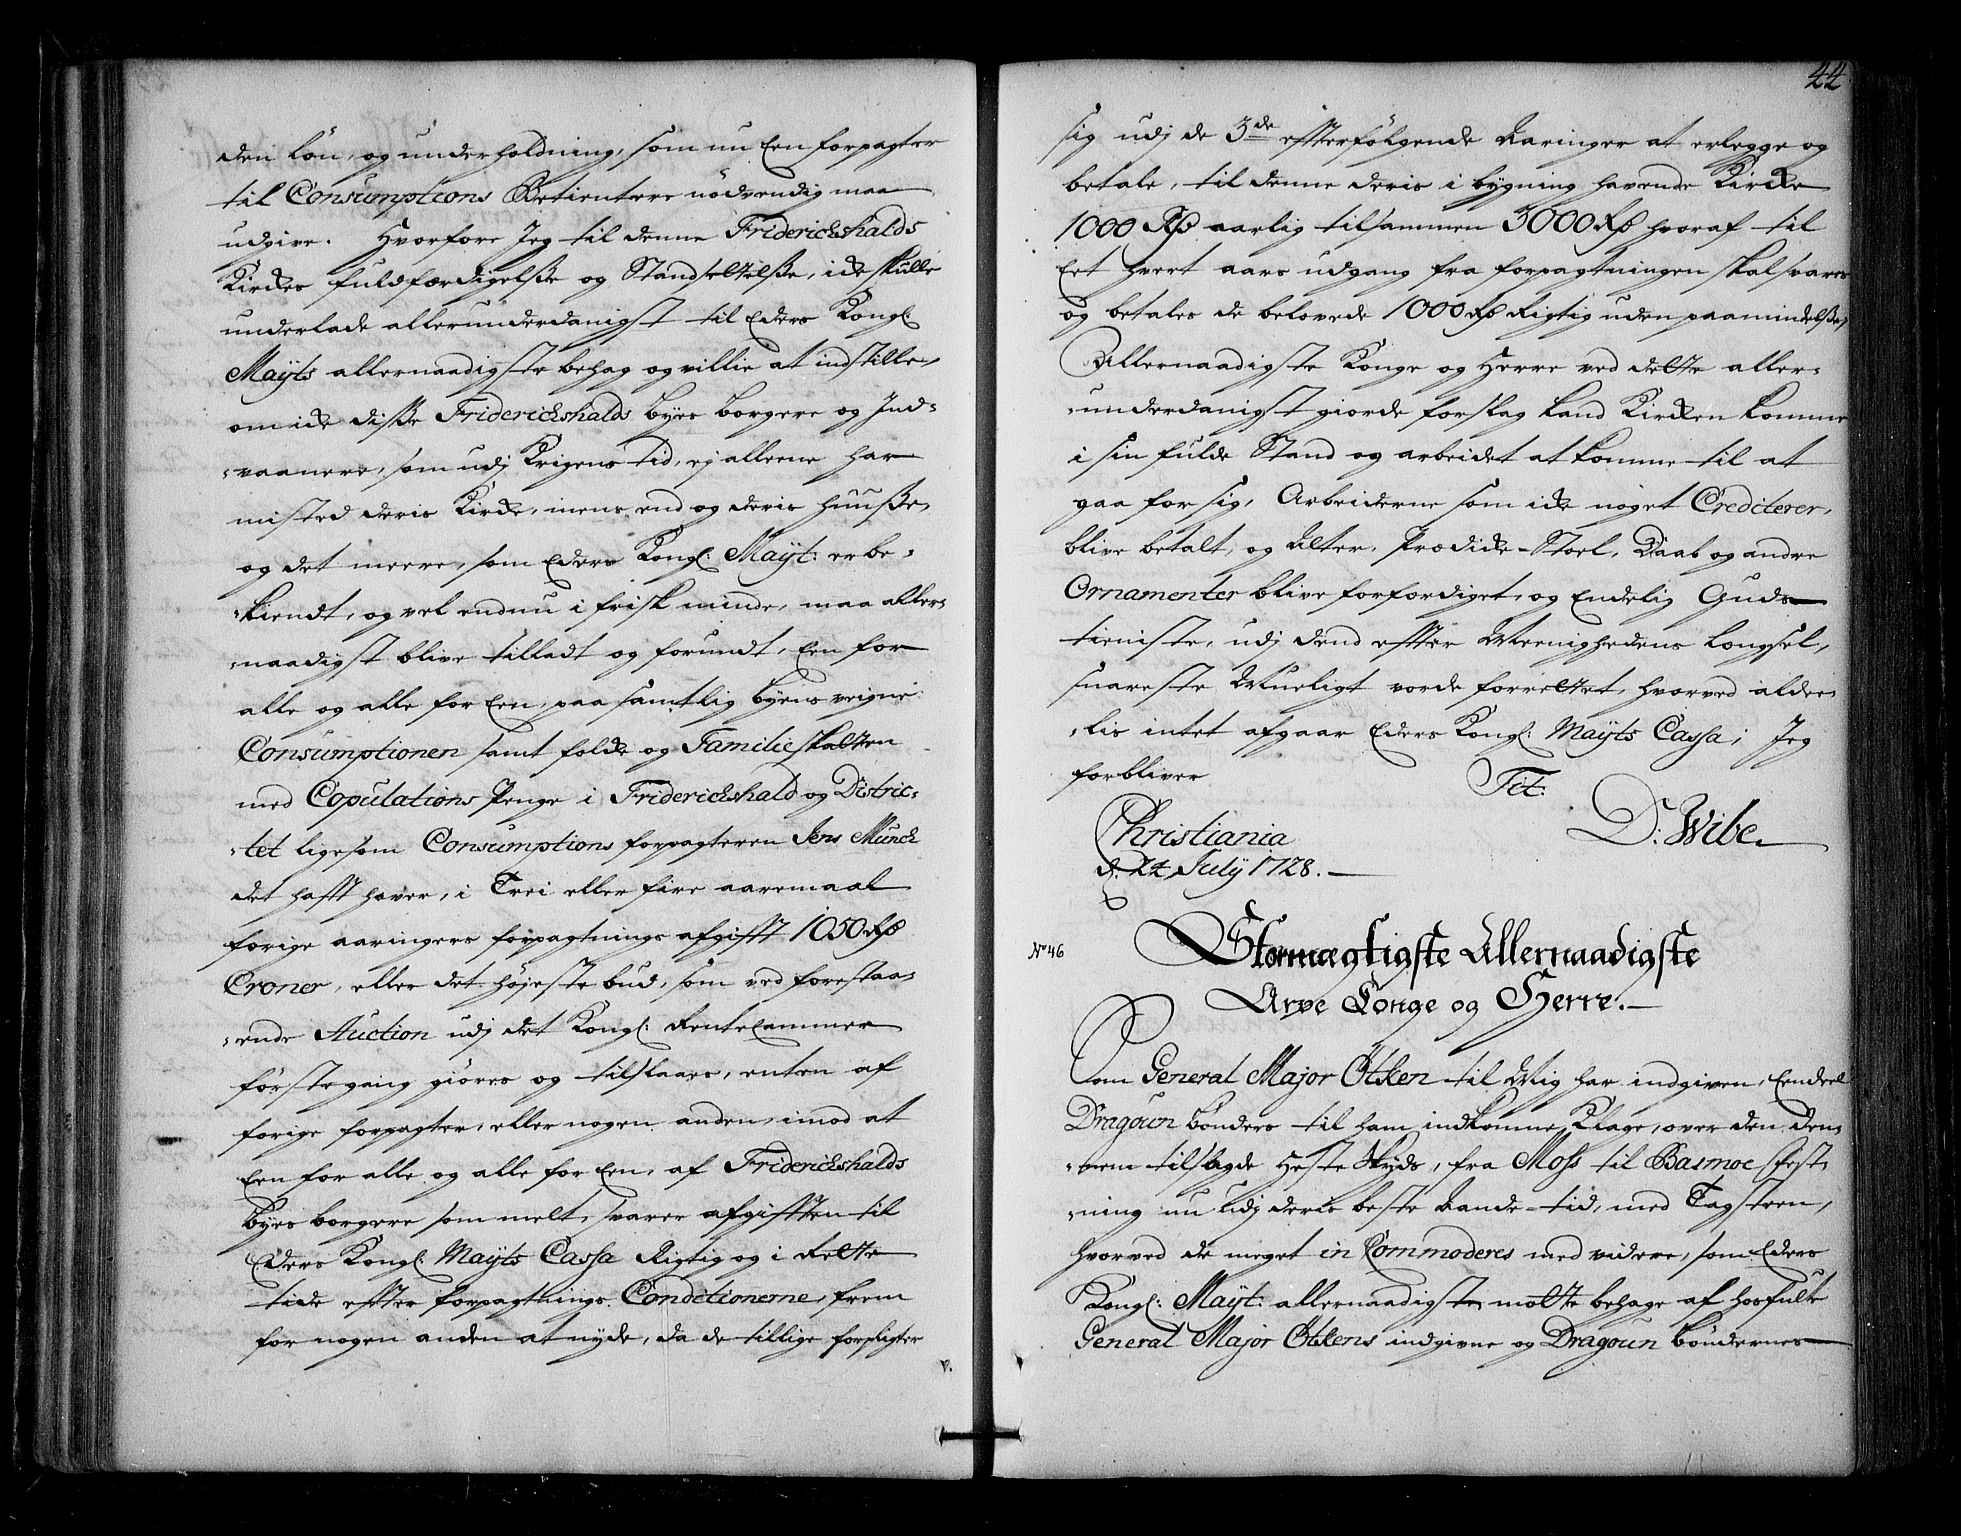 den Løn, og underholdning, som nu Een forpagter
til Consumptions Betientere nødvendig maa
udgive. Hvorfore Jeg til denne Friderichshalds
Kirckes fuldfærdigelsse og Standsettelsse, icke skulle
underlade allerunderdanigst til Eders Kongl:
Mayts allernaadigste behag og villie at indstille,
om icke disse Friderichshalds byes borgere og Ind-
vaanere, som udj Krigens tid, ej alleene har
misted deris Kircke, mens end og deris huusse,
og det meere, som Eders Kongl: Mayt: er be-
kiendt, og vel endnu i frisk minde, maa aller-
naadigst blive tilladt og forundt, Een for
alle og alle for Een, paa samtlig byens veigne
Consumptionen samt folcke og Familie skatten
med Copulations Penge i Friderichshald og Distric-
tet ligesom Consumptions forpagteren Jens Munch
det hafft haver, i Trei eller fire aaremaal
forige aaringers forpagtnings afgifft 1050 Rdr
Croner, eller det højeste bud, som ved forestaa-
ende Auction udj det Kongl: RenteCammer
førstegang giøres og tilslaaes, enten af
forige forpagter, eller nogen anden, imod at
Een for alle og alle for Een, af Friderichshalds
byes borgere som melt, svarer afgifften til
Eders Kongl: Mayts Cassa Rigtig og i Rette
tide effter forpagtnings Conditionerne, frem
for nogen anden at nyde, da de tillige forpligter
44
sig udj de 3de effterfølgende Aaringer at erlegge og
betale, til denne deris i bygning havende Kircke
1000 Rdr aarlig tilsammen 3000 Rdr hvoraf til
Eet hvert aars udgang fra forpagtningen skal svares
og betales de belovede 1000 Rdr Rigtig uden paamindelsse,
Allernaadigste Konge og Herre ved dette aller-
underdanigst giorde forslag kand Kircken komme
i sin fulde Stand og arbeidet at komme til at
gaa for sig, Arbeiderne som icke noget Crediterer,
blive betalt, og Alter, Prædicke-Stoel, Daab og andre
Ornamenter blive forfærdiget, og Endelig Guds
tieniste, udj dend effter Meenighedens Længsel,
snareste Mueligt vorde forrettet, hvorved aldee-
lis intet afgaar Eders Kongl: Mayts Cassa; Jeg
forbliver Tit:
Christiania D: Wibe
d. 24 July 1728.
No 46
Stormægtigste Allernaadigste
Arve Konge og Herre.
Som General Major Øtken til Mig har indgiven, Eendeel
Dragoun bønders til ham indkomne Klage, over den dem
nem tilsagde Heste Skyds, fra Moss til Basmoe fæst-
ning nu udj deris beste Aande-tid, med Tagsteen,
hvorved de meget in Commoderes med videre, som Eders
Kongl: Mayt: allernaadigste motte behage af hosfulte
General Major Øtkens indgivne og Dragoun bøndernes